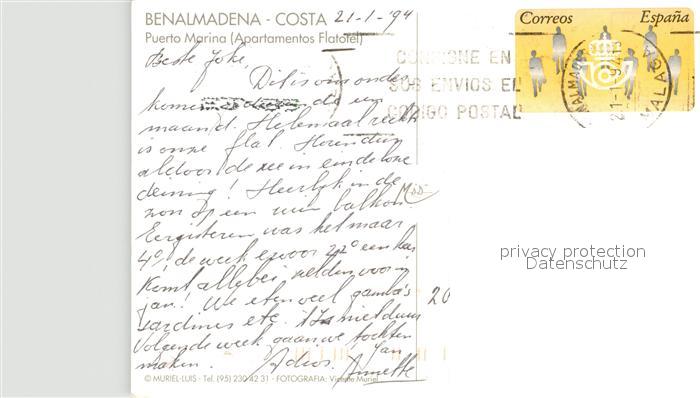 BENALMADENA - COSTA 21-1-'94
Puerto Marina (Apartamentos Flatotel)
Correos España
Beste Joke,
CONSIGNE EN
SUS ENVIOS EL
CODIGO POSTAL
MALAGA
Dit is ons onder
komen
maand. Helemaal rechts
is onze flat. Horen dus
aldoor de zee in eindeloze
deining! Heerlijk in de
zon op een balkon.
Eergisteren was het maar
4°, de week ervoor 22° een keer
Komt allebei zelden voor in
jan! We eten veel gamba's
sardines etc. niet duur
Volgende week gaan we tochten
maken. Adios. Jan
Annette
20
privacy protection
Datenschutz
© MURIEL-LUIS - Tel. (95) 230 42 31 - FOTOGRAFIA: Vicente Muriel